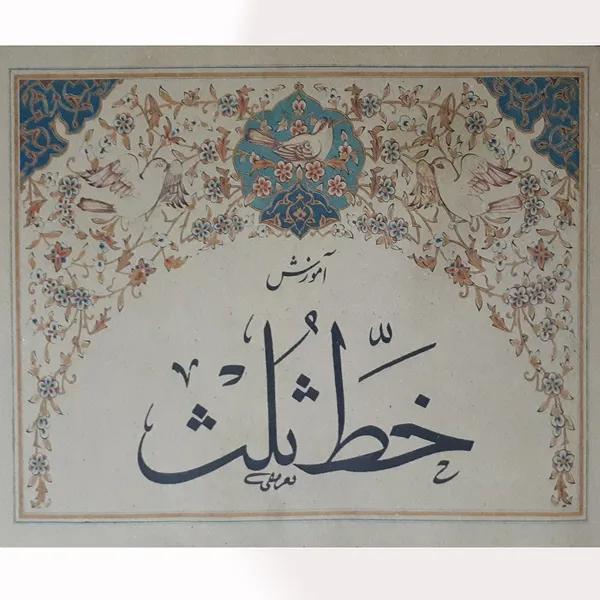 آموزش
خطّ ثُلُث